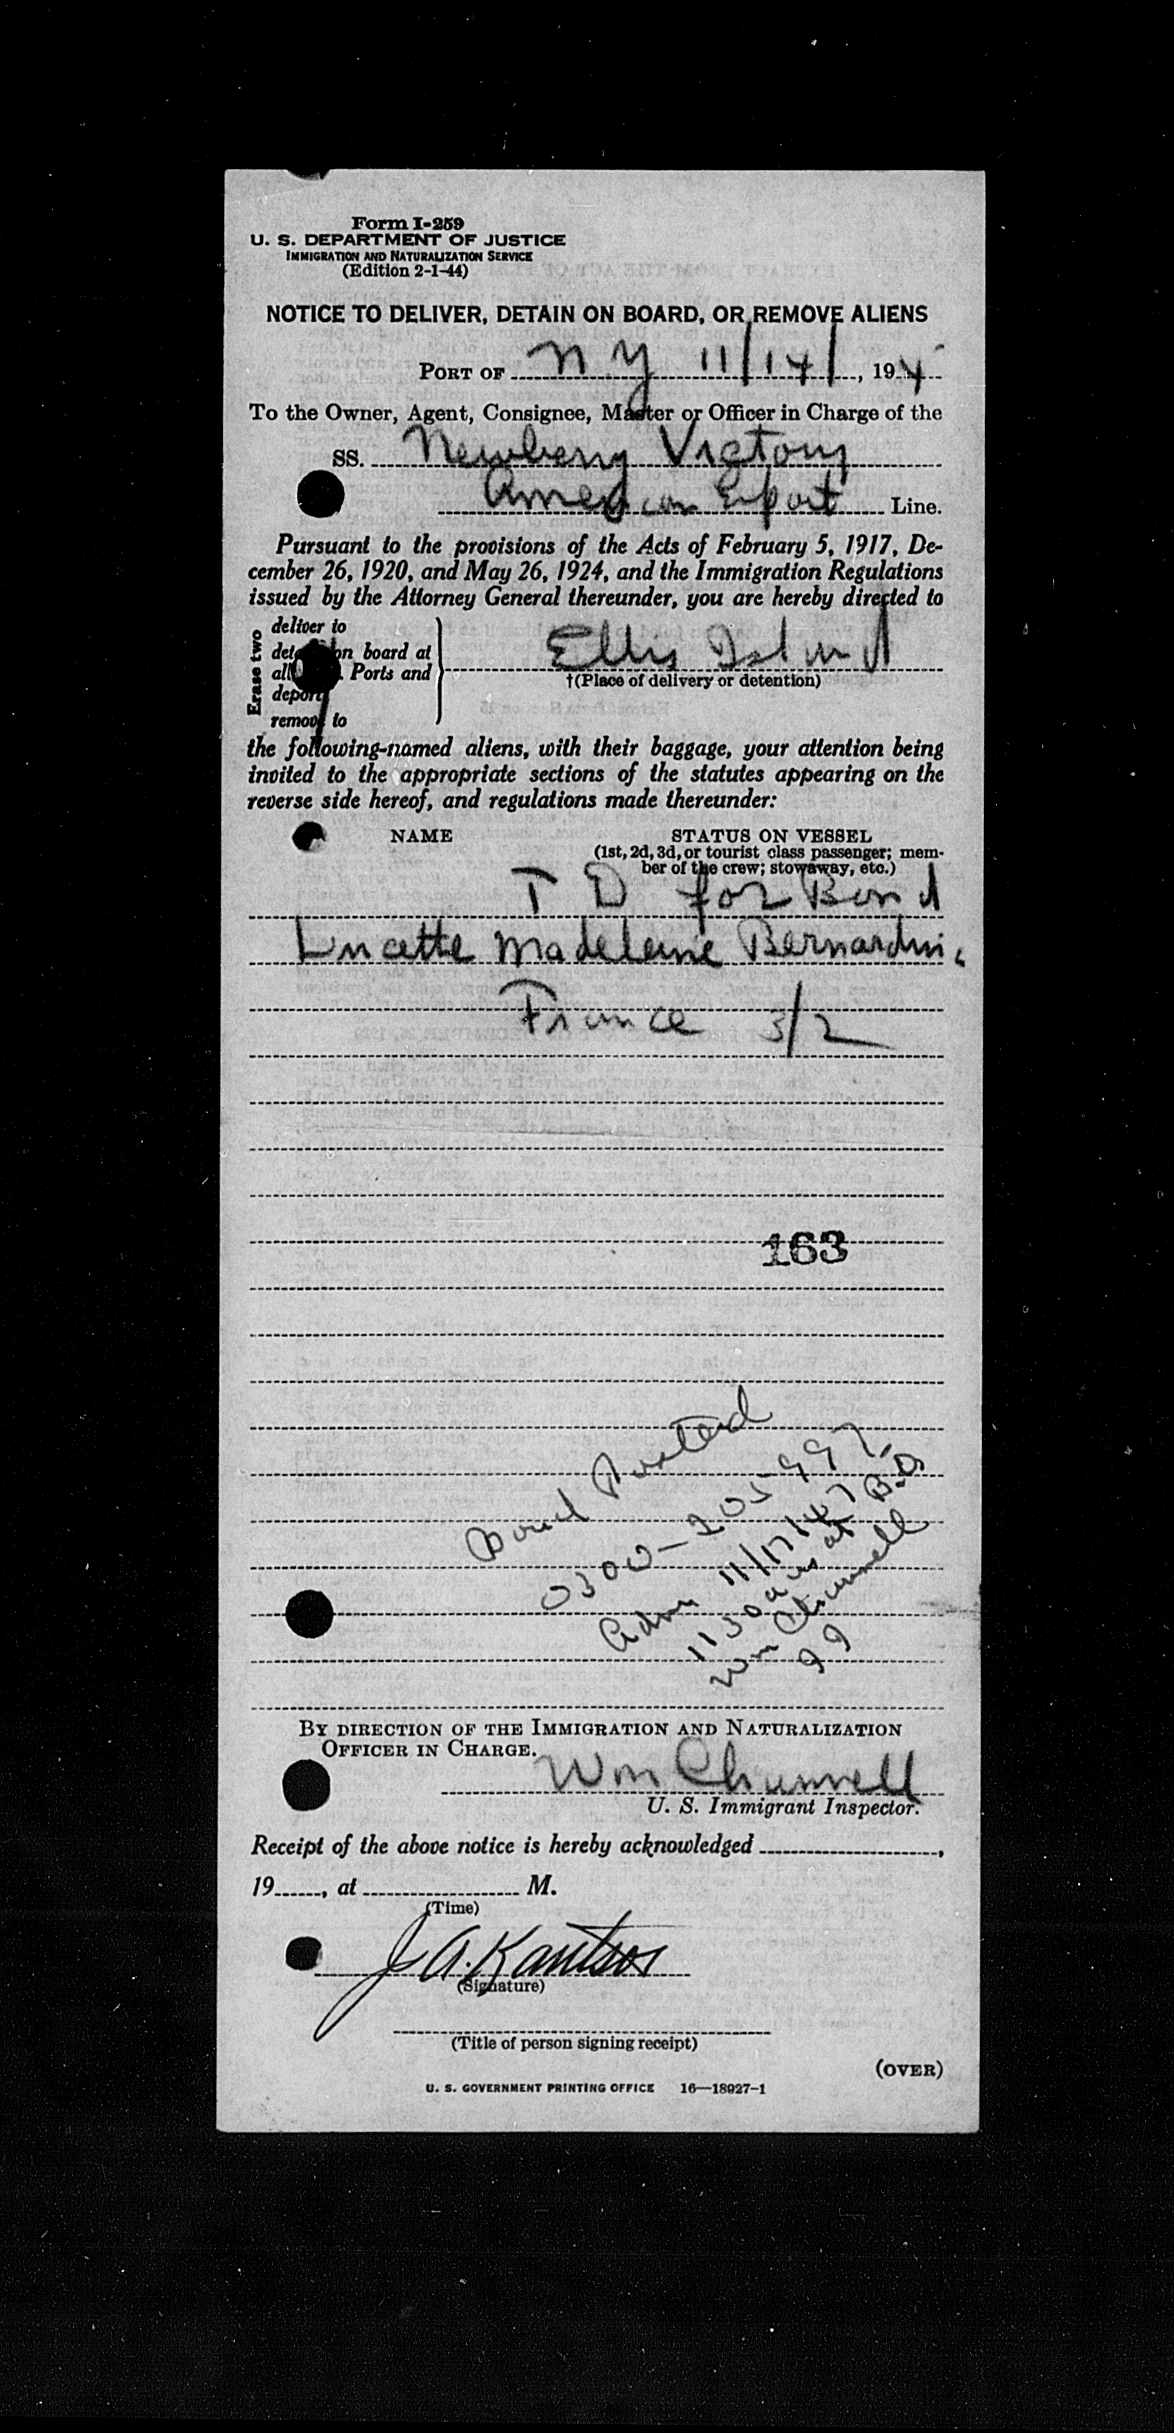 Form I-259
U. S. DEPARTMENT OF JUSTICE
IMMIGRATION AND NATURALIZATION SERVICE
(Edition 2-1-44)
NOTICE TO DELIVER, DETAIN ON BOARD, OR REMOVE ALIENS
PORT OF N Y 11/14/, 194
To the Owner, Agent, Consignee, Master or Officer in Charge of the
SS. Newberry Victory
American Export Line.
Pursuant to the provisions of the Acts of February 5, 1917, De-
cember 26, 1920, and May 26, 1924, and the Immigration Regulations
issued by the Attorney General thereunder, you are hereby directed to
Erase two
deliver to
on board at
all Ports and
deport
remove to
Ellis Island
†(Place of delivery or detention)
the following-named aliens, with their baggage, your attention being
invited to the appropriate sections of the statutes appearing on the
reverse side hereof, and regulations made thereunder:
NAME STATUS ON VESSEL
(1st, 2d, 3d, or tourist class passenger; mem-
ber of the crew; stowaway, etc.)
T D for Bond
Lucette Madeleine Bernardini
France 3/2
163
Bond Posted
0300-205997
Adm 11/17/47 B.D
1130am at
Wm Chunnell
99
BY DIRECTION OF THE IMMIGRATION AND NATURALIZATION
OFFICER IN CHARGE.
Wm Chunnell
U. S. Immigrant Inspector.
Receipt of the above notice is hereby acknowledged ,
19 , at M.
(Time)
J A. Kantsos
(Signature)
(Title of person signing receipt)
(OVER)
U. S. GOVERNMENT PRINTING OFFICE 16—18927-1